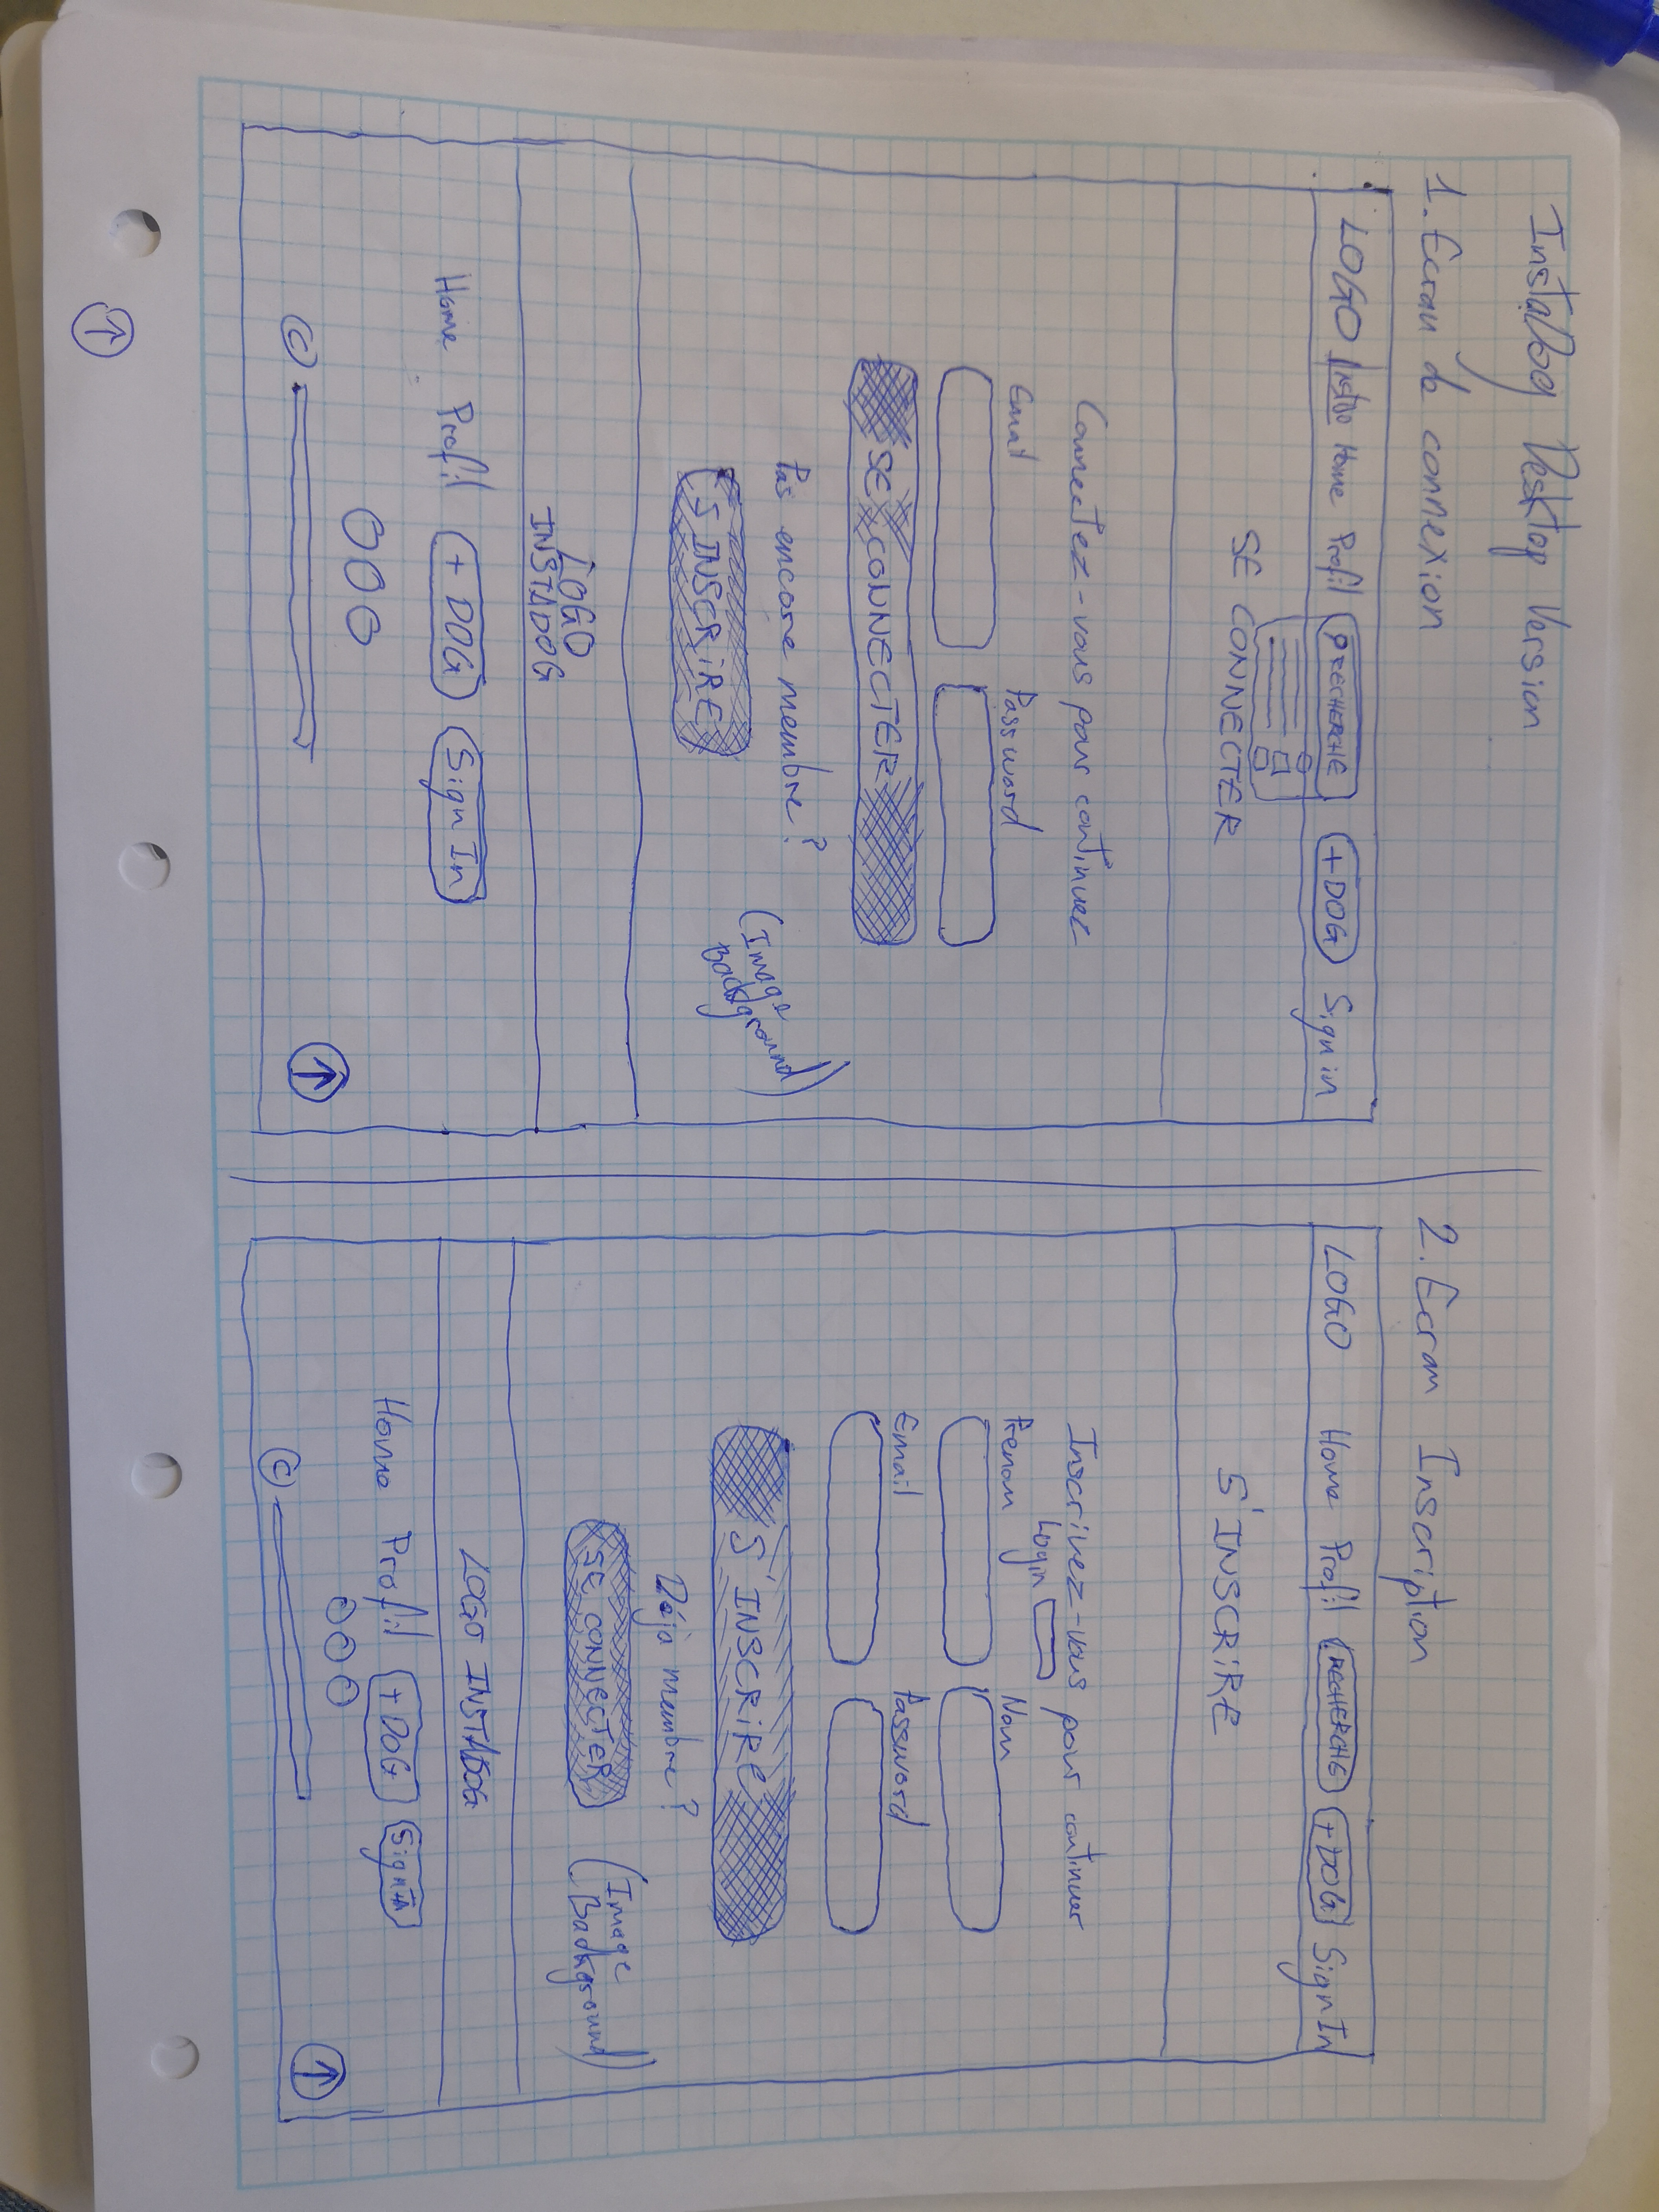 InstaDog Desktop Version
1. Ecran de connexion
LOGO Home Profil RECHERCHE +DOG Sign in
SE CONNECTER
Connectez-vous pour continuer
Email Password
SE CONNECTER
Pas encore membre?
S INSCRiRE
(Image
Background)
LOGO
INSTADOG
Home Profil + DOG Sign In
©
↑
2. Ecran Inscription
LOGO Home Profil RECHERCHE +DOG Sign In
S'INSCRiRE
Inscrivez-vous pour continuer
Login
Prenom Nom
Email Password
S'INSCRiRE
Déjà membre?
SE CONNECTER
(Image
Background)
LOGO INSTADOG
Home Profil +DOG Sign In
©
↑
↑